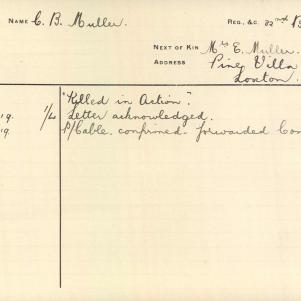 NAME C. B. Muller. REG., &C. 32nd B
NEXT OF KIN Mrs E. Muller.
ADDRESS Piney Villa
Loxton.
"Killed in Action".
19. 1/4 Letter acknowledged.
19. P/Cable. confirmed - forwarded Con